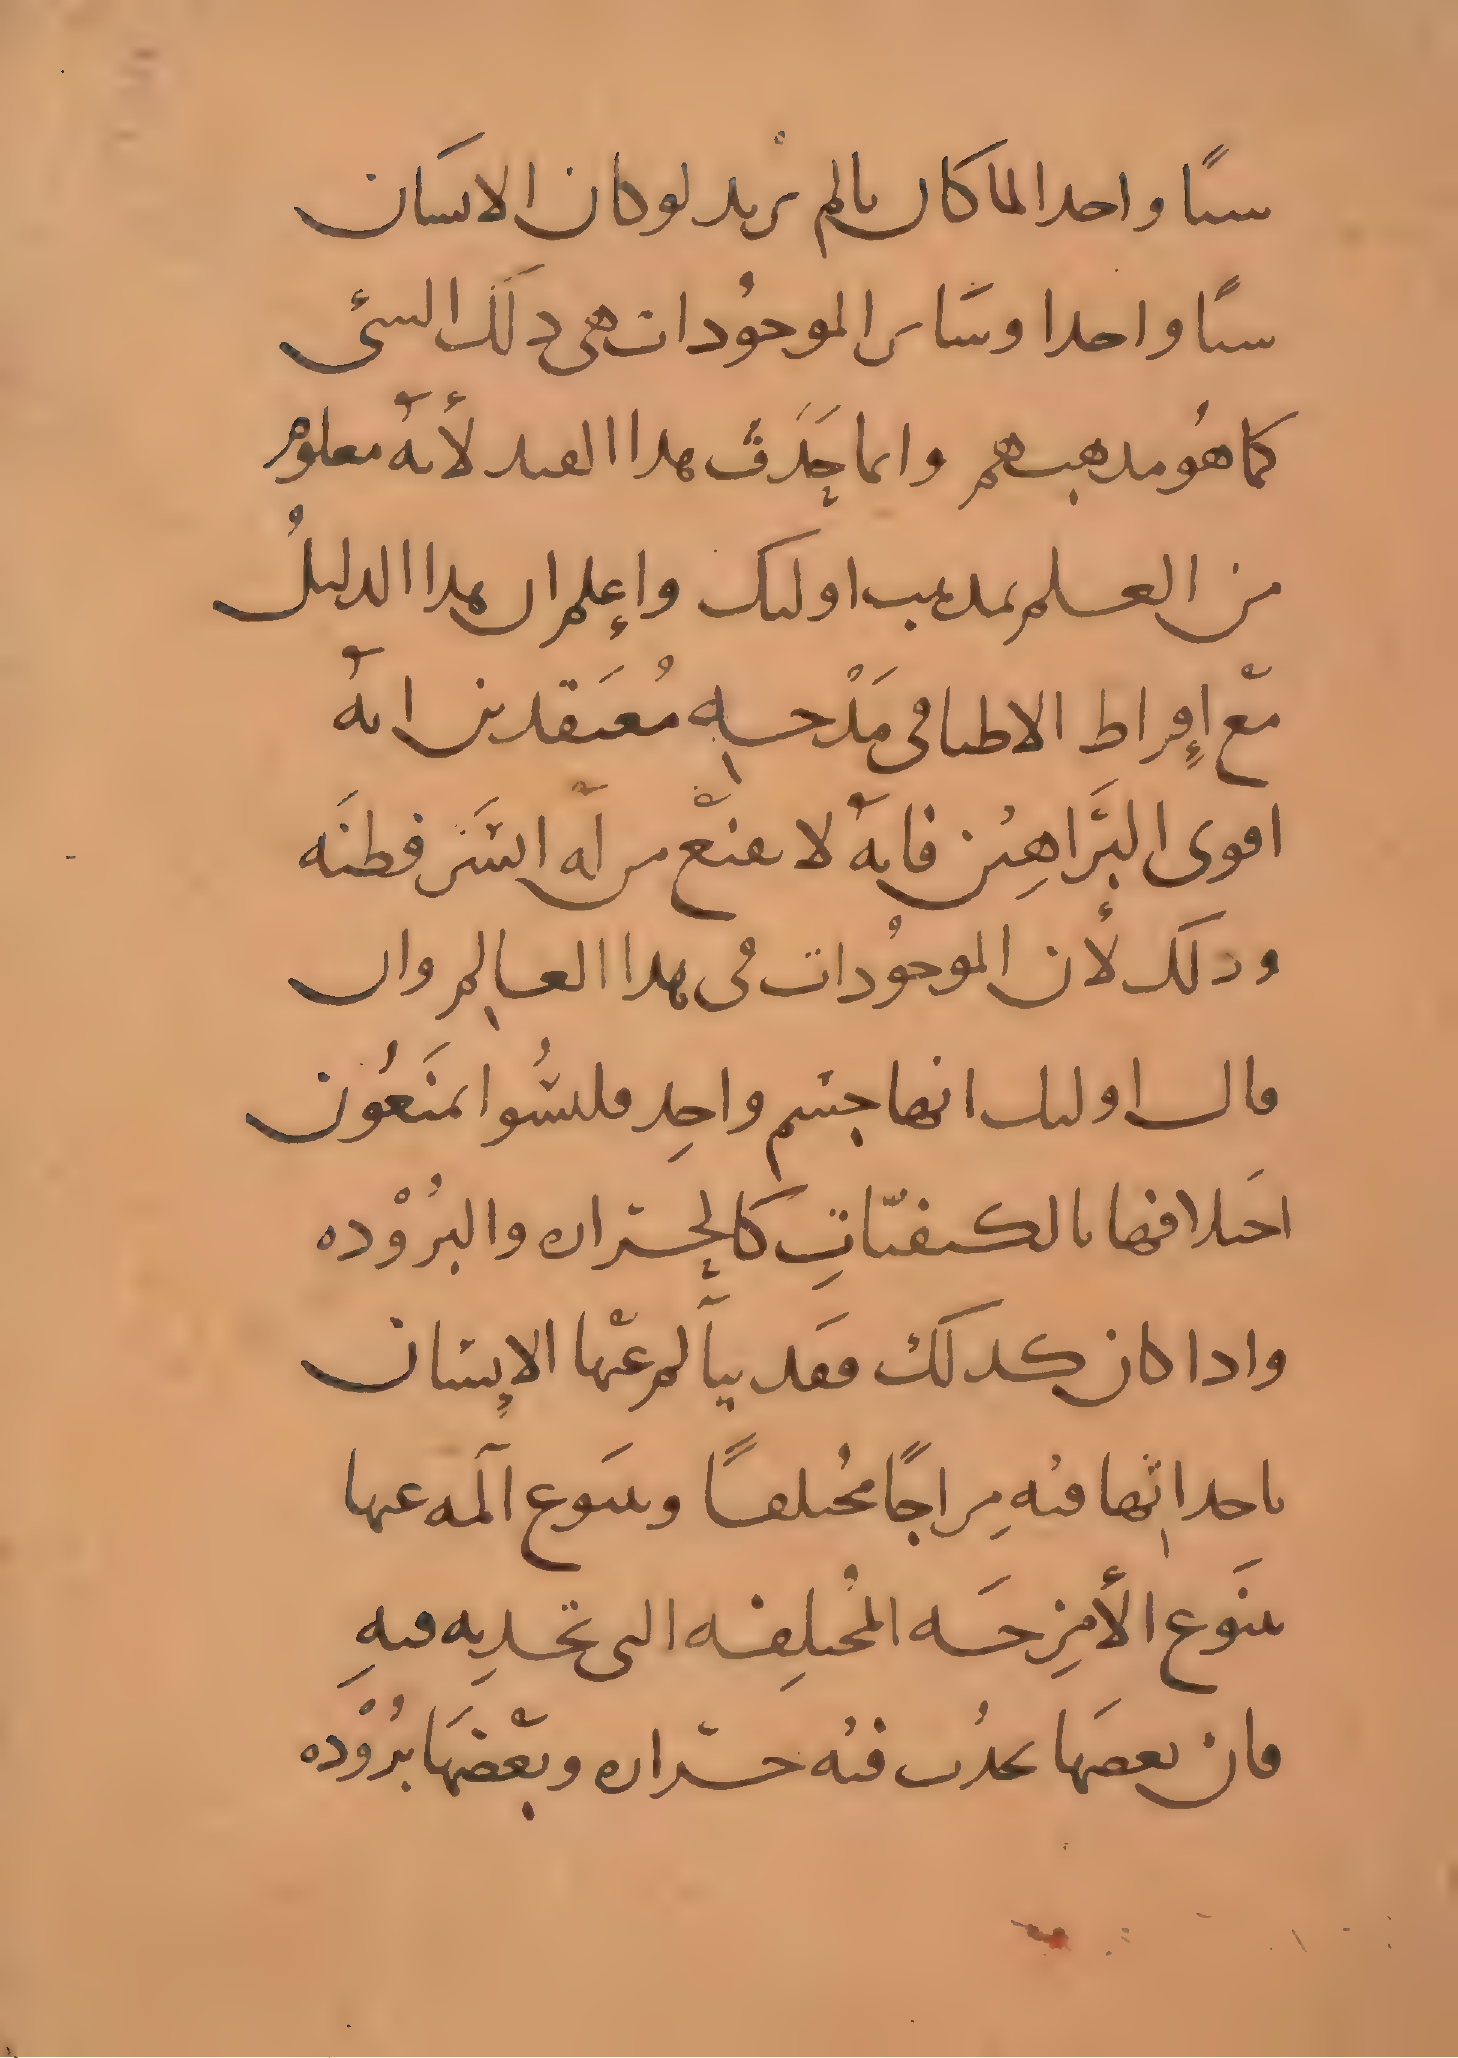 شيئًا واحدا لما كان يالم يريد لو كان الانسان
شيئًا واحدا وسَاير الموجُودات هي ذلَك الشئ
كما هُو مذهبهم وانما حَذَف هذا القيد لأنهُ معلوم
من العلم بمذهب اوليك واعلم ان هذا الدليلُ
مّع إفراط الاطبا في مَدْحه مُعتَقدين انهُ
اقوى البَراهِين فانهُ لا يقنّع من لّه ايسَر فطنَه
وذلَك لأن الموجُودات في هذا العالم وان
قال اوليك انها جسْم واحِد فليسُوا يمنَعُون
اختلافها بالكيفيّاتِ كالحراره والبرُوْده
واذا كان كذلَك فقَد يتألم عنْها الإنسان
باحداثها فيه مِزاجًا مُختلفًا ويتنَوع آلمه عنها
بتنَوع الأمزِجَه المُختلِفه التي تحدثه فيهِ
فان بعضَها يحدُث فيُه حرّاره وبعْضهَا برُوْده